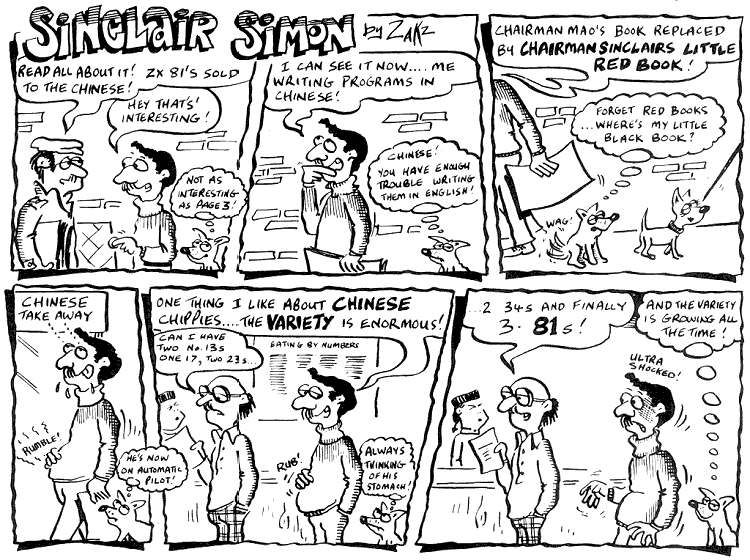 SINCLAIR SIMON by ZAKZ
READ ALL ABOUT IT! ZX 81'S SOLD
TO THE CHINESE!
HEY THAT'S'
INTERESTING!
NOT AS
INTERESTING
AS PAGE 3!
I CAN SEE IT NOW.... ME
WRITING PROGRAMS IN
CHINESE!
CHINESE!
YOU HAVE ENOUGH
TROUBLE WRITING
THEM IN ENGLISH!
CHAIRMAN MAO'S BOOK REPLACED
BY CHAIRMAN SINCLAIRS LITTLE
RED BOOK!
FORGET RED BOOKS
...WHERE'S MY LITTLE
BLACK BOOK?
WAG!
CHINESE
TAKE AWAY
RUMBLE!
HE'S NOW
ON AUTOMATIC
PILOT!
ONE THING I LIKE ABOUT CHINESE
CHIPPIES....THE VARIETY IS ENORMOUS!
CAN I HAVE
TWO No.13s
ONE 17, TWO 23s...
EATING BY NUMBERS
RUB!
ALWAYS
THINKING
OF HIS
STOMACH!
...2 34s AND FINALLY
3. 81s!
AND THE VARIETY
IS GROWING ALL
THE TIME!
ULTRA
SHOCKED!